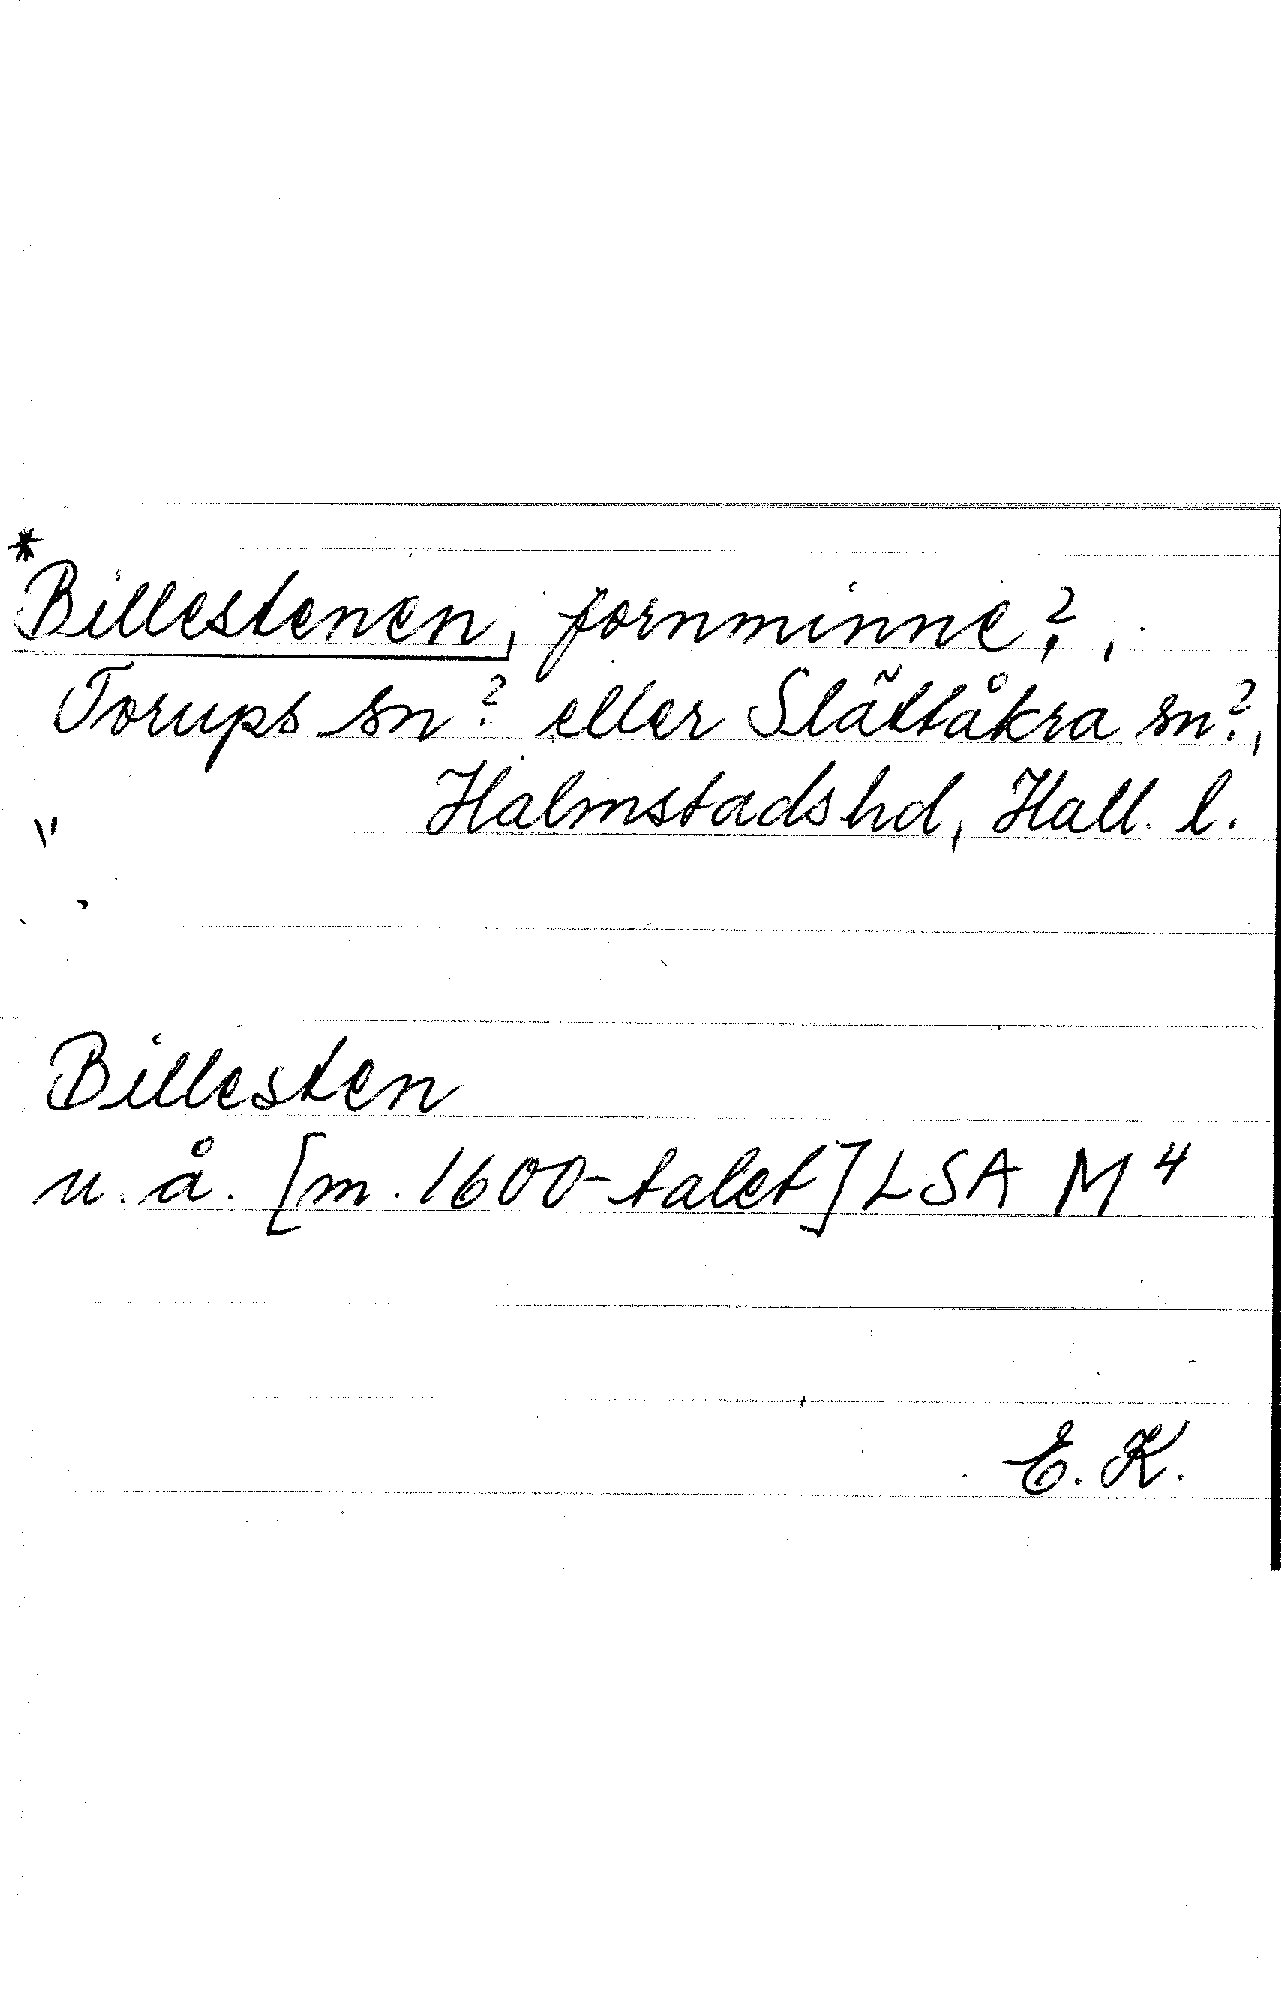 *Billestenen, fornminne?,
Torups sn? eller Slättåkra sn?,
Halmstads hd, Hall. l.
"
Billesten
u. å. [m. 1600-talet] LSA M 4
E. K.